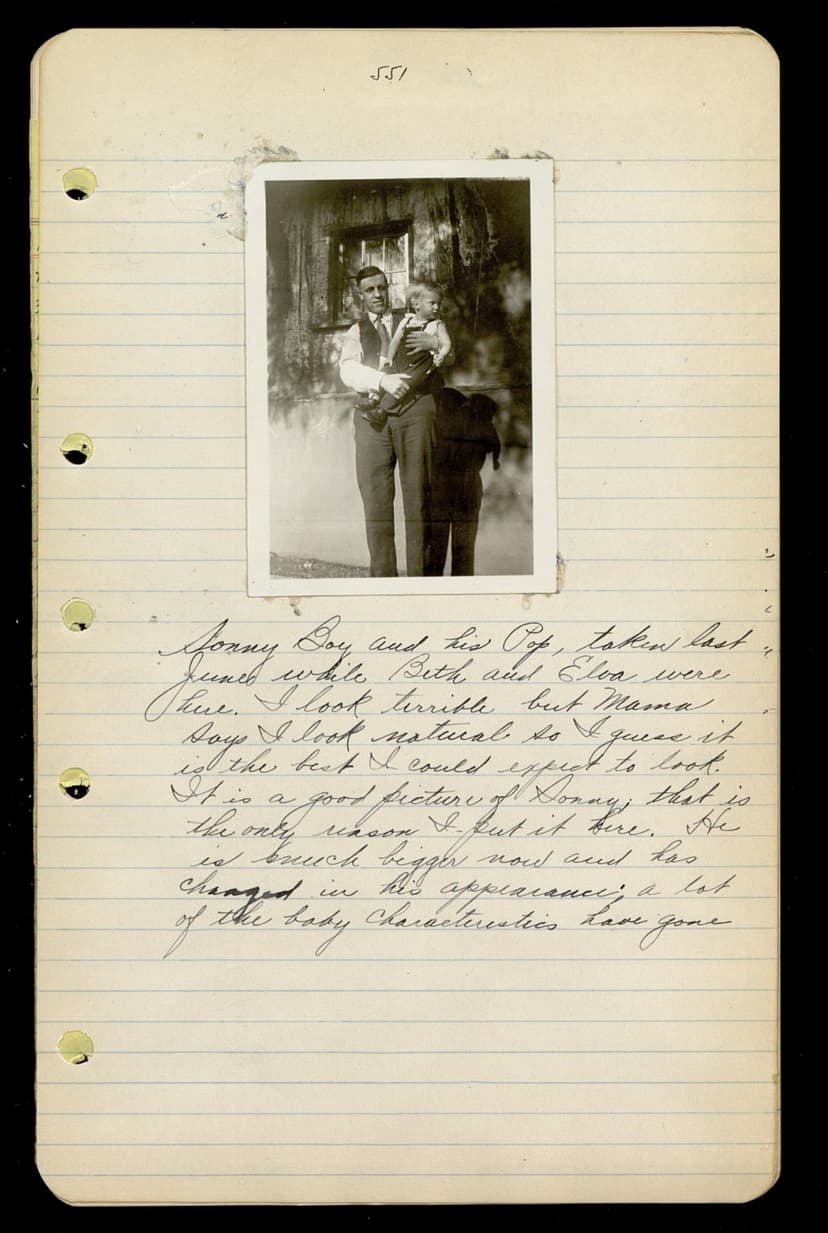 551
Sonny Boy and his Pop, taken last
June while Beth and Elva were
here. I look terrible but Mama
says I look natural so I guess it
is the best I could expect to look.
It is a good picture of Sonny; that is
the only reason I put it here. He
is much bigger now and has
changed in his appearance; a lot
of the baby characteristics have gone